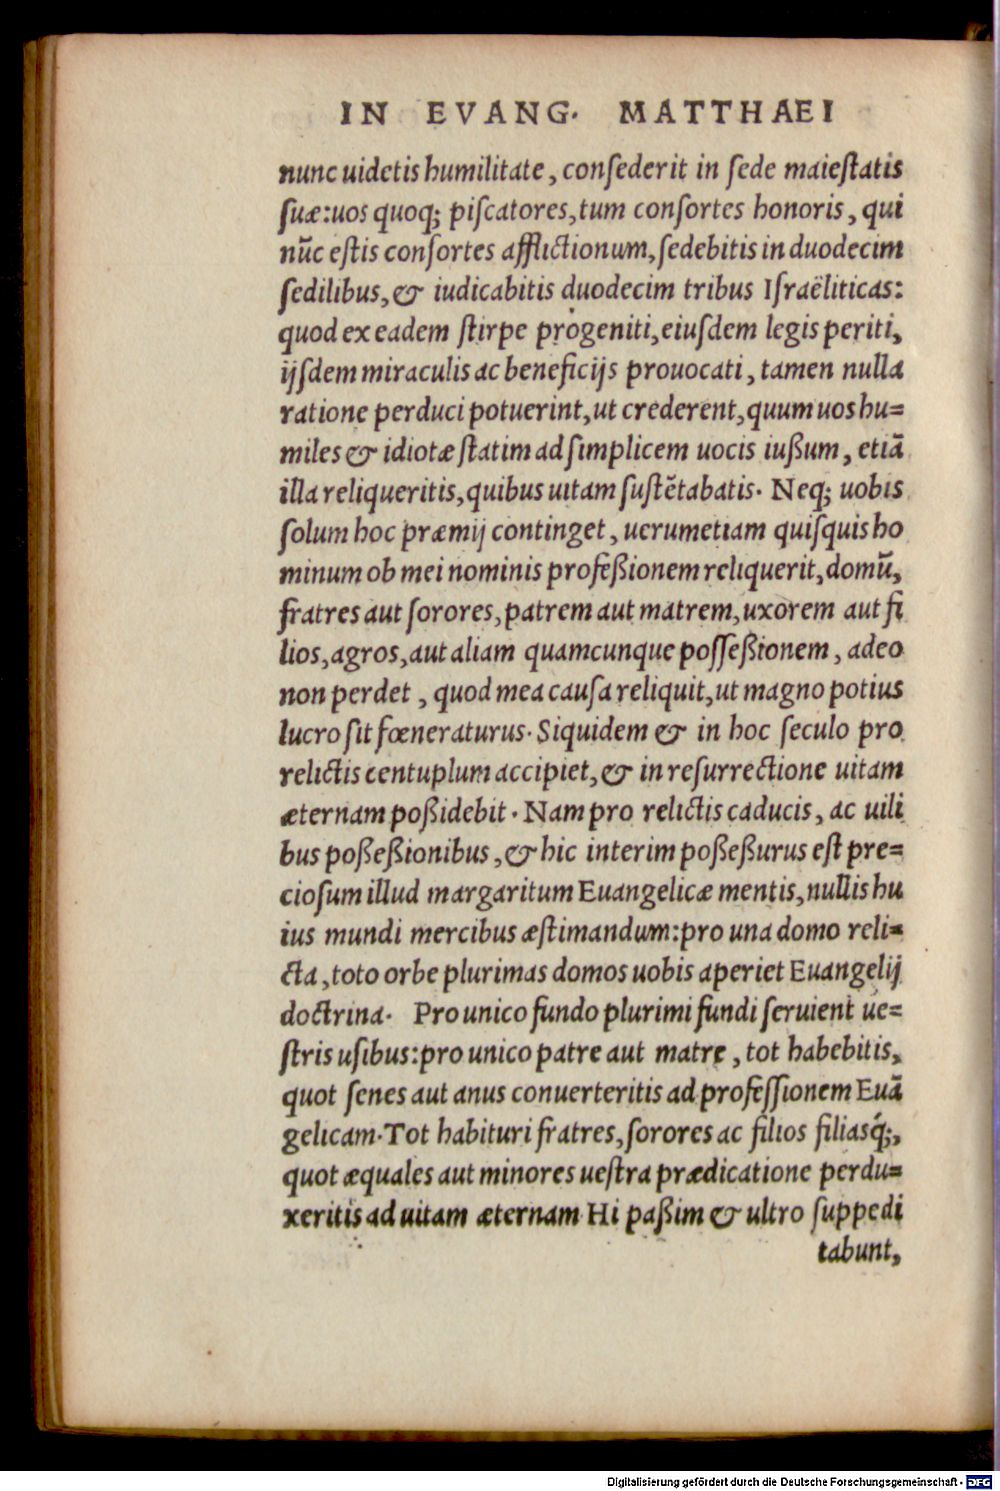 IN EVANG. MATTHAEI
nunc uidetis humilitate, conſederit in ſede maieſtatis
ſuæ: uos quoq; piſcatores, tum conſortes honoris, qui
nūc eſtis conſortes afflictionum, ſedebitis in duodecim
ſedilibus, & iudicabitis duodecim tribus Iſraëliticas:
quod ex eadem ſtirpe progeniti, eiuſdem legis periti,
ijſdem miraculis ac beneficijs prouocati, tamen nulla
ratione perduci potuerint, ut crederent, quum uos hu=
miles & idiotæ ſtatim ad ſimplicem uocis iußum, etiā
illa reliqueritis, quibus uitam ſuſtētabatis. Neq; uobis
ſolum hoc præmij continget, uerumetiam quiſquis ho
minum ob mei nominis profeßionem reliquerit, domū,
fratres aut ſorores, patrem aut matrem, uxorem aut fi
lios, agros, aut aliam quamcunque poſſeßionem, adeo
non perdet, quod mea cauſa reliquit, ut magno potius
lucro ſit fœneraturus. Siquidem & in hoc ſeculo pro
relictis centuplum accipiet, & in reſurrectione uitam
æternam poßidebit. Nam pro relictis caducis, ac uili
bus poßeßionibus, & hic interim poßeßurus eſt pre=
cioſum illud margaritum Euangelicæ mentis, nullis hu
ius mundi mercibus æſtimandum: pro una domo reli=
cta, toto orbe plurimas domos uobis aperiet Euangelij
doctrina. Pro unico fundo plurimi fundi ſeruient ue=
ſtris uſibus: pro unico patre aut matre, tot habebitis,
quot ſenes aut anus conuerteritis ad profeſſionem Euā
gelicam. Tot habituri fratres, ſorores ac filios filiasq́;,
quot æquales aut minores ueſtra prædicatione perdu=
xeritis ad uitam æternam Hi paßim & ultro ſuppedi
tabunt,
Digitalisierung gefördert durch die Deutsche Forschungsgemeinschaft - DFG